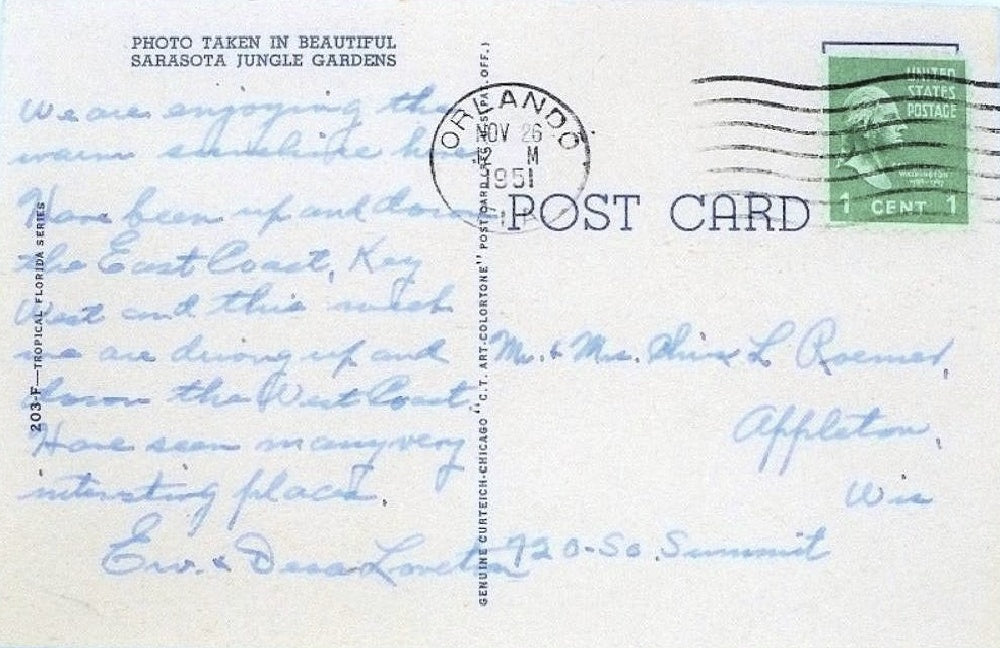 PHOTO TAKEN IN BEAUTIFUL
SARASOTA JUNGLE GARDENS
We are enjoying the
warm sunshine here
Have been up and down
the East Coast, Key
West and this week
we are driving up and
down the West Coast.
Have seen many very
interesting places.
Erv. &
203-F—TROPICAL FLORIDA SERIES
GENUINE CURTEICH-CHICAGO "C.T. ART-COLORTONE" POST CARD (REG. U.S. PAT. OFF.)
ORLANDO
NOV 26
M
1951
POST CARD
UNITED
STATES
POSTAGE
WASHINGTON
1 CENT 1
Mr. & Mrs. L Roemer,
Appleton,
Wis
920-So. Summit